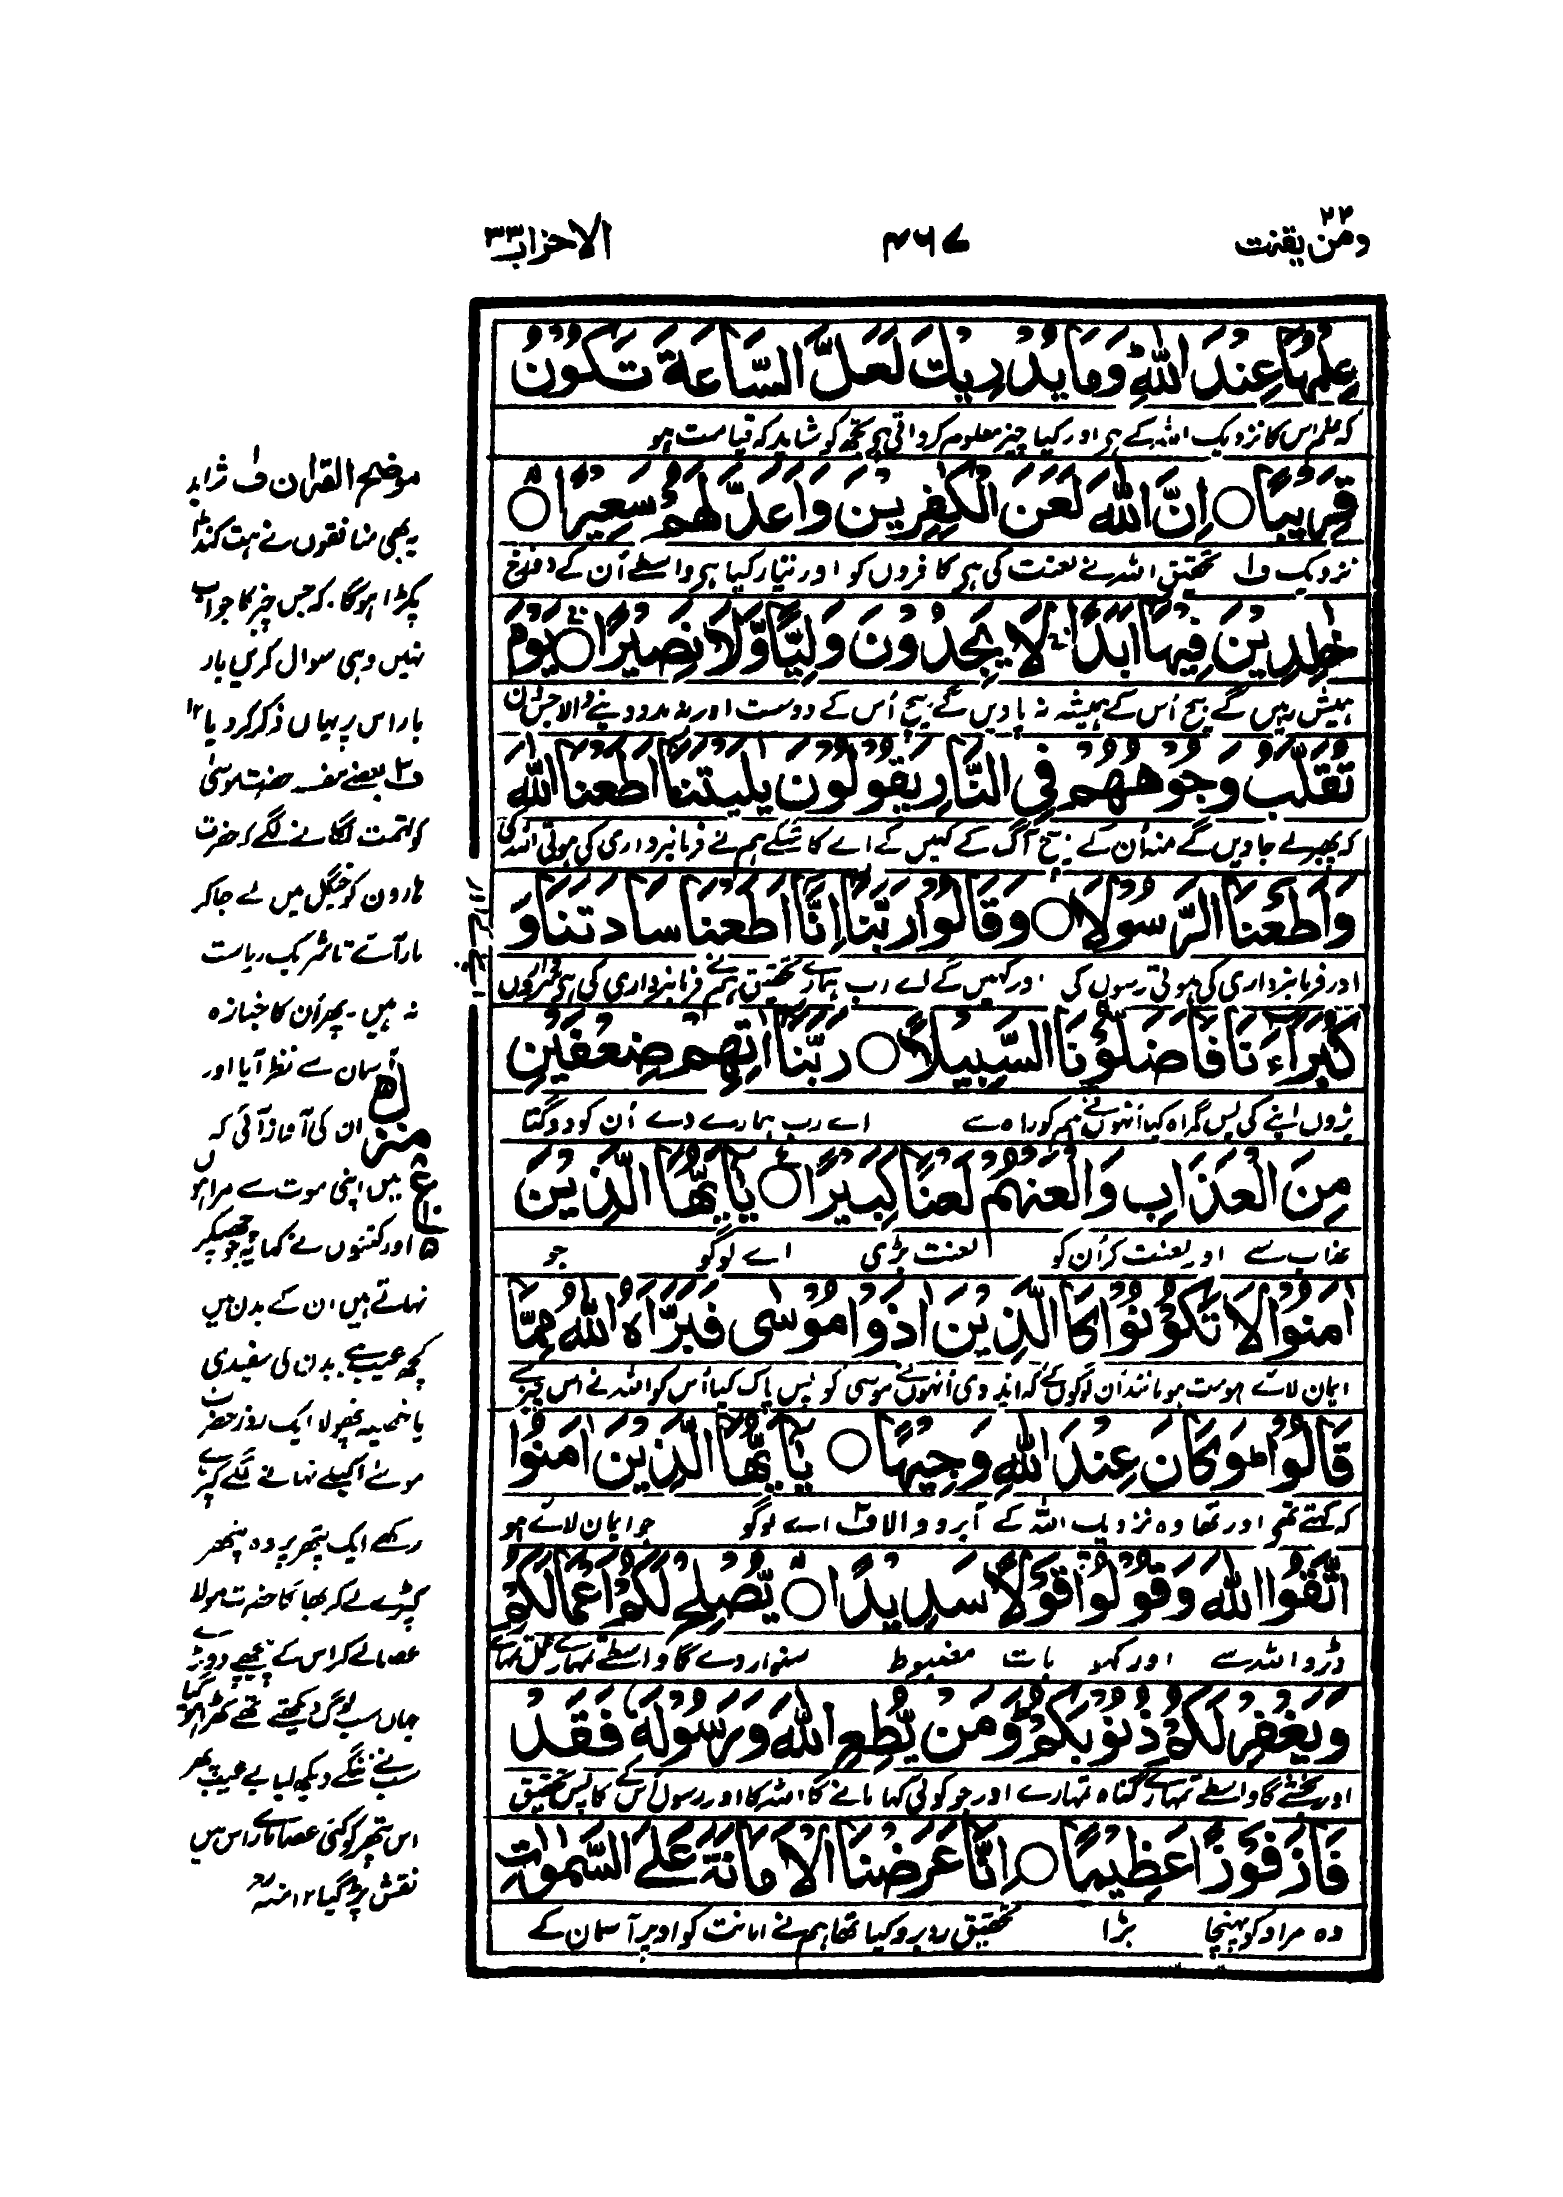 ومن یقنت ۲۲
۴۶۷
الاحزاب ۳۳
عِلْمُهَا عِنْدَ اللّٰهِ وَمَا يُدْرِيْكَ لَعَلَّ السَّاعَةَ تَكُوْنُ
کہ علم اس کا نزدیک اللہ کے ہی اور کیا چیز معلوم کرواتی ہی تجھ کو شاید کہ قیامت ہو
قَرِيْبًا ○ اِنَّ اللّٰهَ لَعَنَ الْكٰفِرِيْنَ وَاَعَدَّ لَهُمْ سَعِيْرًا ○
نزدیک ف۱ تحقیق اللہ نے لعنت کی ہی کافروں کو اور تیار کیا ہی واسطے اُن کے دوزخ
خٰلِدِيْنَ فِيْهَا اَبَدًا لَا يَجِدُوْنَ وَلِيًّا وَّلَا نَصِيْرًا ○ يَوْمَ
ہمیش رہیں گے بیچ اُس کے ہمیشہ نہ پاویں گے بیچ اُس کے دوست اور نہ مدد دینے والا جس دن
تُقَلَّبُ وُجُوْهُهُمْ فِى النَّارِ يَقُوْلُوْنَ يٰلَيْتَنَا اَطَعْنَا اللّٰهَ
کہ پھیرے جاویں گے منہ اُن کے بیچ آگ کے کہیں گے اے کاشکے ہم نے فرمانبرداری کی ہوتی اللہ کی
وَاَطَعْنَا الرَّسُوْلَا ○ وَقَالُوْا رَبَّنَا اِنَّا اَطَعْنَا سَادَتَنَا وَ
اور فرمانبرداری کی ہوتی رسول کی اور کہیں گے اے رب ہمارے تحقیق ہم نے فرمانبرداری کی ہی سرداروں
كُبَرَآءَنَا فَاَضَلُّوْنَا السَّبِيْلَا ○ رَبَّنَا اٰتِهِمْ ضِعْفَيْنِ
بڑوں اپنے کی پس گمراہ کیا اُنہوں نے ہم کو راہ سے اے رب ہمارے دے اُن کو دوگنا
مِنَ الْعَذَابِ وَالْعَنْهُمْ لَعْنًا كَبِيْرًا ○ يٰٓاَيُّهَا الَّذِيْنَ
عذاب سے اور لعنت کر اُن کو لعنت بڑی اے لوگو جو
اٰمَنُوْا لَا تَكُوْنُوْا كَالَّذِيْنَ اٰذَوْا مُوْسٰى فَبَرَّاَهُ اللّٰهُ مِمَّا
ایمان لائے ہو مت ہو مانند اُن لوگوں کے کہ ایذا دی اُنہوں نے موسیٰ کو پس پاک کیا اُس کو اللہ نے اس چیز سے
قَالُوْا وَكَانَ عِنْدَ اللّٰهِ وَجِيْهًا ○ يٰٓاَيُّهَا الَّذِيْنَ اٰمَنُوا
کہ کہتے تھے اور تھا وہ نزدیک اللہ کے آبرو والا ف۲ اے لوگو جو ایمان لائے ہو
اتَّقُوا اللّٰهَ وَقُوْلُوْا قَوْلًا سَدِيْدًا ○ يُّصْلِحْ لَكُمْ اَعْمَالَكُمْ
ڈرو اللہ سے اور کہو بات مضبوط سنوار دے گا واسطے تمہارے عمل تمہارے
وَيَغْفِرْ لَكُمْ ذُنُوْبَكُمْ وَمَنْ يُّطِعِ اللّٰهَ وَرَسُوْلَهٗ فَقَدْ
اور بخشے گا واسطے تمہارے گناہ تمہارے اور جو کوئی کہا مانے گا اللہ کا اور رسول اُس کے کا پس تحقیق
فَازَ فَوْزًا عَظِيْمًا ○ اِنَّا عَرَضْنَا الْاَمَانَةَ عَلَى السَّمٰوٰتِ
وہ مراد کو پہنچا بڑا تحقیق روبرو کیا تھا ہم نے امانت کو اوپر آسمان کے
موضح القرآن ف۱ شاید
یہ بھی منافقوں نے ہتکنڈا
پکڑا ہوگا۔ کہ جس چیز کا جواب
نہیں وہی سوال کریں بار
بار اس پر یہاں ذکر کر دیا ۱۲
ف۲ بعضے مفسد حضرت موسیٰ
کو تہمت لگانے لگے کہ حضرت
ہارون کو جنگل میں لے جا کر
مار آئے تا شریک ریاست
نہ ہیں۔ پھر اُن کا جنازہ
آسمان سے نظر آیا اور
ان کی آواز آئی کہ
میں اپنی موت سے مرا ہوں
اور کتنوں نے کہا یہ جو چھپکر
نہاتے ہیں ان کے بدن میں
کچھ عیب ہے بدن کی سفیدی
یا خصیہ پھولا ایک روز حضرت
موسےٰ اکیلے نہانے لگے کپڑے
رکھے ایک پتھر پر وہ پتھر
کپڑے لے کر بھاگا حضرت موسےٰ
عصا لے کر اس کے پیچھے دوڑے
جہاں سب لوگ دیکھتے تھے کھڑا ہو گیا
سب نے ننگے دیکھ لیا بے عیب پھر
اس پتھر کو کئی عصا مارے اس میں
نقش پڑ گیا ۱۲ منہ رح
منزل ۵
ع ۸
۱۰
۵